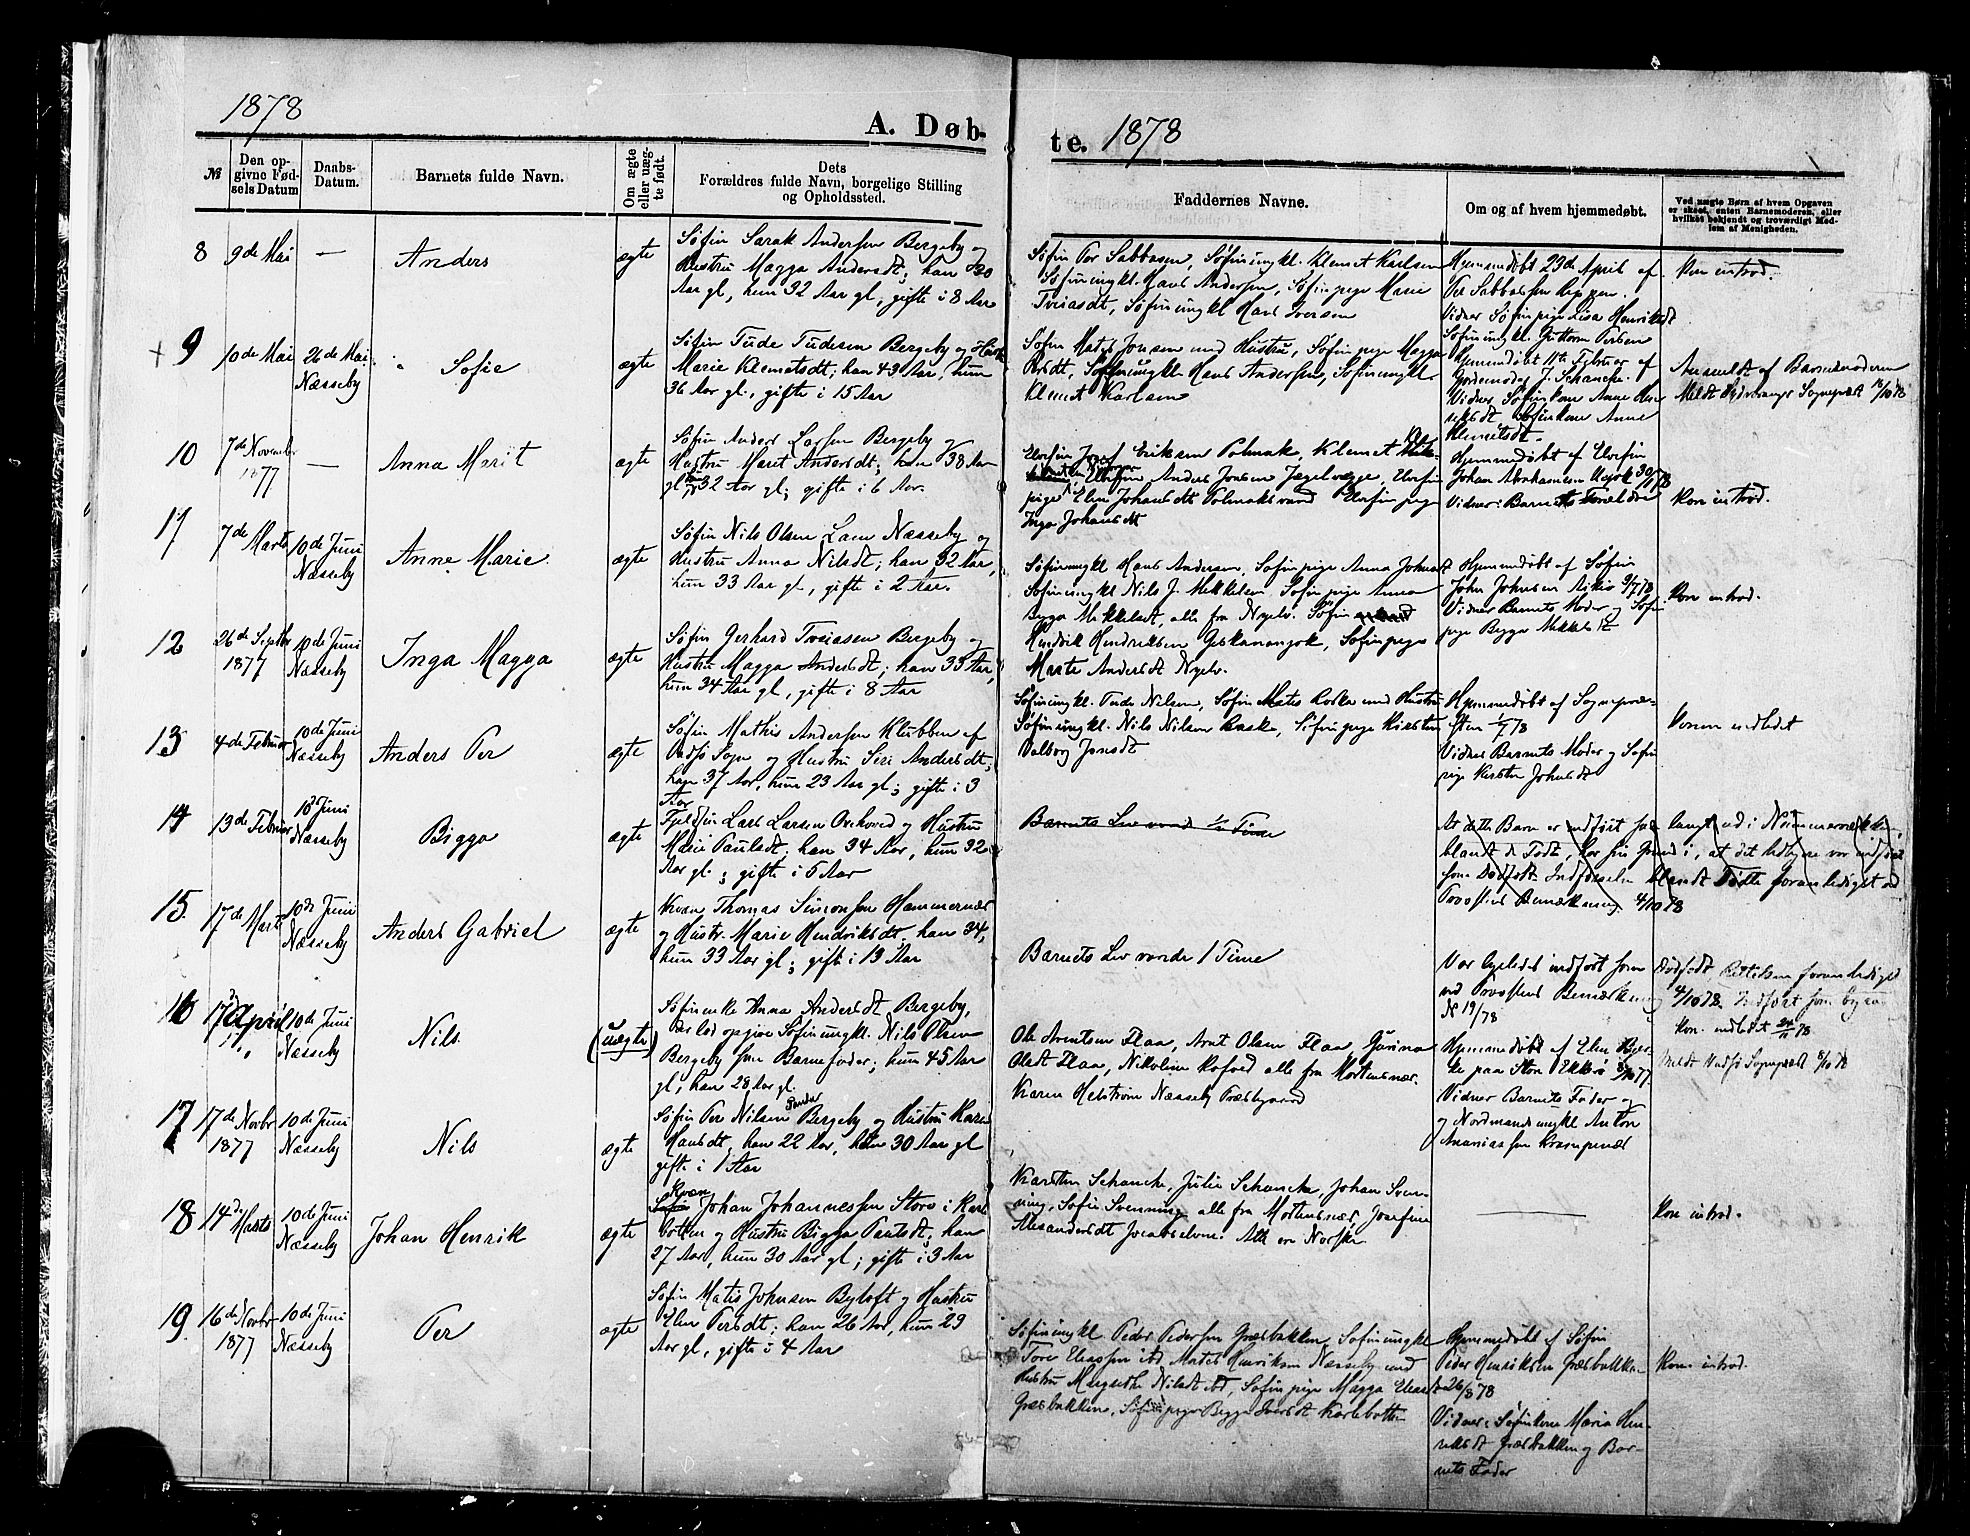 1878
A. Døb-
te. 1878
№
Den op-
givne Fød-
sels Datum
Daabs-
Datum.
Barnets fulde Navn.
Om ægte
eller uæg-
te født.
Dets
Forældres fulde Navn, borgelige Stilling
og Opholdssted.
Faddernes Navne.
Om og af hvem hjemmedøbt.
Ved uægte Børn af hvem Opgaven
er skeet, enten Barnemoderen, eller
hvilket bekjendt og troværdigt Med-
lem af Menigheden.
8
9de Mai
—
Anders
ægte
Søfin Sarak Andersen Bergeby og
Hustru Magga Andersdt; han 30
Aar gl, hun 32 Aar gl, gifte i 8 Aar
Søfin Per Sabbasen, Søfinungkl. Klemet Karlsen
Søfinungkl. Hans Andersen, Søfinpige Marie
Søfinungkl Hans Iversen
Hjemmedøbt 29de April af
Per Sabbasen
Vidner Søfinpige Lisa Henriksdt
Søfinungkl. Guttorm Persen
Kon introd.
9
10de Mai
26de Mai
Næsseby
Sofie
ægte
Søfin Tude Tudesen Bergeby og Hustru
Marie Klemetsdt; han 43 Aar, hun
36 Aar gl., gifte i 15 Aar
Søfin Mathis Jonsen med Hustru, Søfinpige Magga
Persdt, Søfinungkl. Hans Andersen, Søfinungkl.
Klemet Karlsen
Hjemmedøbt 11te Februar af
Gjordemoder J. Schancke.
Vidner Søfinkone Anne Hen-
riksdt Søfinkone Anne
Klemetsdt.
Anmeldt af Barnemoderen
Meldt Sydvaranger Sognepræst
10
7de November
1877
—
Anna Marit
ægte
Søfin Anders Larsen Bergeby og
Hustru Marit Andersdt; han 38 Aar
gl, 32 Aar gl; gifte i 6 Aar.
Elvefin Josef Eriksen Polmak, Klemet
Elvefin Anders Jonsen Elvefin
pige Elen Johansdt Polmakvand Elvefin pige
Inga Johansdt
Hjemmedøbt af Elvefin
Johan Abrahamsen
Vidner: Barnets Forældre
Kon introd.
11
7de Marts
10de Juni
Næsseby
Anne Marie
ægte
Søfin Nils Olsen Næsseby og
Hustru Anna Nilsdt; han 32 Aar,
hun 33 Aar gl, gifte i 2 Aar.
Søfinungkl Hans Andersen, Søfinpige Anna Johnsdt
Søfinungkl Nils J. Mikkelsen, Søfinpige Anna
Bigga Mikkelsdt, alle fra Nyelv. Søfin
Hendrik Hendriksen Søfinpige
Marte Andersdt Nyelv.
Hjemmedøbt af Søfin
John Johnsen
Vidner Barnets Moder og Søfin
pige Bigga Mikkelsdt
Kon introd.
12
26de Septbr
1877
10de Juni
Næsseby
Inga Magga
ægte
Søfin Gerhard Bergeby og
Hustru Magga Andersdt; han 33 Aar,
hun 34 Aar gl, gifte i 8 Aar
Søfinungkl. Tude Nilsen, Søfin Mathis med Hustru
Søfinungkl. Nils Nilsen Søfinpige Kirsten
Valborg Jonsdt
Hjemmedøbt af Sognepræ-
sten
Vidner Barnets Moder og Søfin
pige Kirsten Johnsdt
Konen indledet
13
4de Februar
10de Juni
Næsseby
Anders Per
ægte
Søfin Mathis Andersen Klubben af
Vadsø Sogn og Hustru Siri Andersdt;
han 37 Aar, hun 23 Aar gl; gifte i 3
Aar
14
13de Februar
10de Juni
Næsseby
Bigga
ægte
Fjeldfin Lars Larsen og Hustru
Marie Paulsdt; han 34 Aar, hun 32
Aar gl; gifte i 6 Aar
Barnets Liv varede ½ Time
At dette Barn er indført for langt ud i Nummerrækken
blandt de Født, har sin Grund i, at det tidligere var indført
som Dødfødt. Indførselen blandt Fødte foranlediget ved
Provstens Bemærkning. 4/10 78
15
17de Marts
10de Juni
Næsseby
Anders Gabriel
ægte
Kvæn Thomas Simonsen Hammernæs
og Hustr. Marie Hendriksdt; han 34,
hun 33 Aar gl; gift i 13 Aar
Barnets Liv varede 1 Time
Var ligeledes indført som Dødfødt Rettelsen foranlediget
ved Provstens Bemærkning 4/10 78
№ 19/78
16
17de April
10de Juni
Næsseby
Nils
(uægte)
Søfinenke Anna Andersdt Bergeby,
Søfinungkl. Nils Olsen
Bergeby som Barnefader; hun 45 Aar
gl, han 28 Aar gl.
Ole Arntsen Flaa, Arnt Olsen Flaa, Gurina
Olsdt Flaa, Nikoline Kofoed alle fra Mortensnæs.
Karen Helstrøm Næsseby Præstegaard
Hjemmedøbt af Elen
paa Store Ekkerø
Vidner Barnets Fader og
og Nordmandsungkl Anton
Ananiassen
Kon. indledet
Meldt Vadsø Sognepræst
17
17de Novbr
1877
10de Juni
Næsseby
Nils
ægte
Søfin Per Nilsen Bergeby og Hustru Karen
Hansdt, han 22 Aar, hun 30 Aar gl
gifte i 1 Aar
Karsten Schancke, Julie Schancke, Johan Sven-
ning, Sofie Svenning alle fra Mortensnæs, Josefine
Alexandersdt Jacobselven. Alle ere Norske
—
Kon introd.
18
14de Marts
10de Juni
Næsseby
Johan Henrik
ægte
Kvæn
Johan Johannessen Store i Karl-
botten og Hustru Bigga Paulsdt; han
27 Aar, hun 30 Aar gl; gifte i 3 Aar
19
16de Novbr
1877
10de Juni
Næsseby
Per
ægte
Søfin Matis Johnsen Byluft og Hustru
Elen Persdt; han 26 Aar, hun 29
Aar gl, gifte i 4 Aar
Søfinungkl Peder Pedersen Græsbakken, Søfinungkl
Tore Eliassen ibd Mathis Henriksen Næsseby med
Hustru Margrethe Nilsdt ibd, Søfinpige Magga Eliasdt
Græsbakken, Søfinpige Bigga Iversdt Karlebotten
Hjemmedøbt af Søfin
Peder Henriksen Græsbakken
26/8 78
Vidner: Søfinkone Maria Hen-
riksdt Græsbakken og Bar-
nets Fader
Kon. introd.